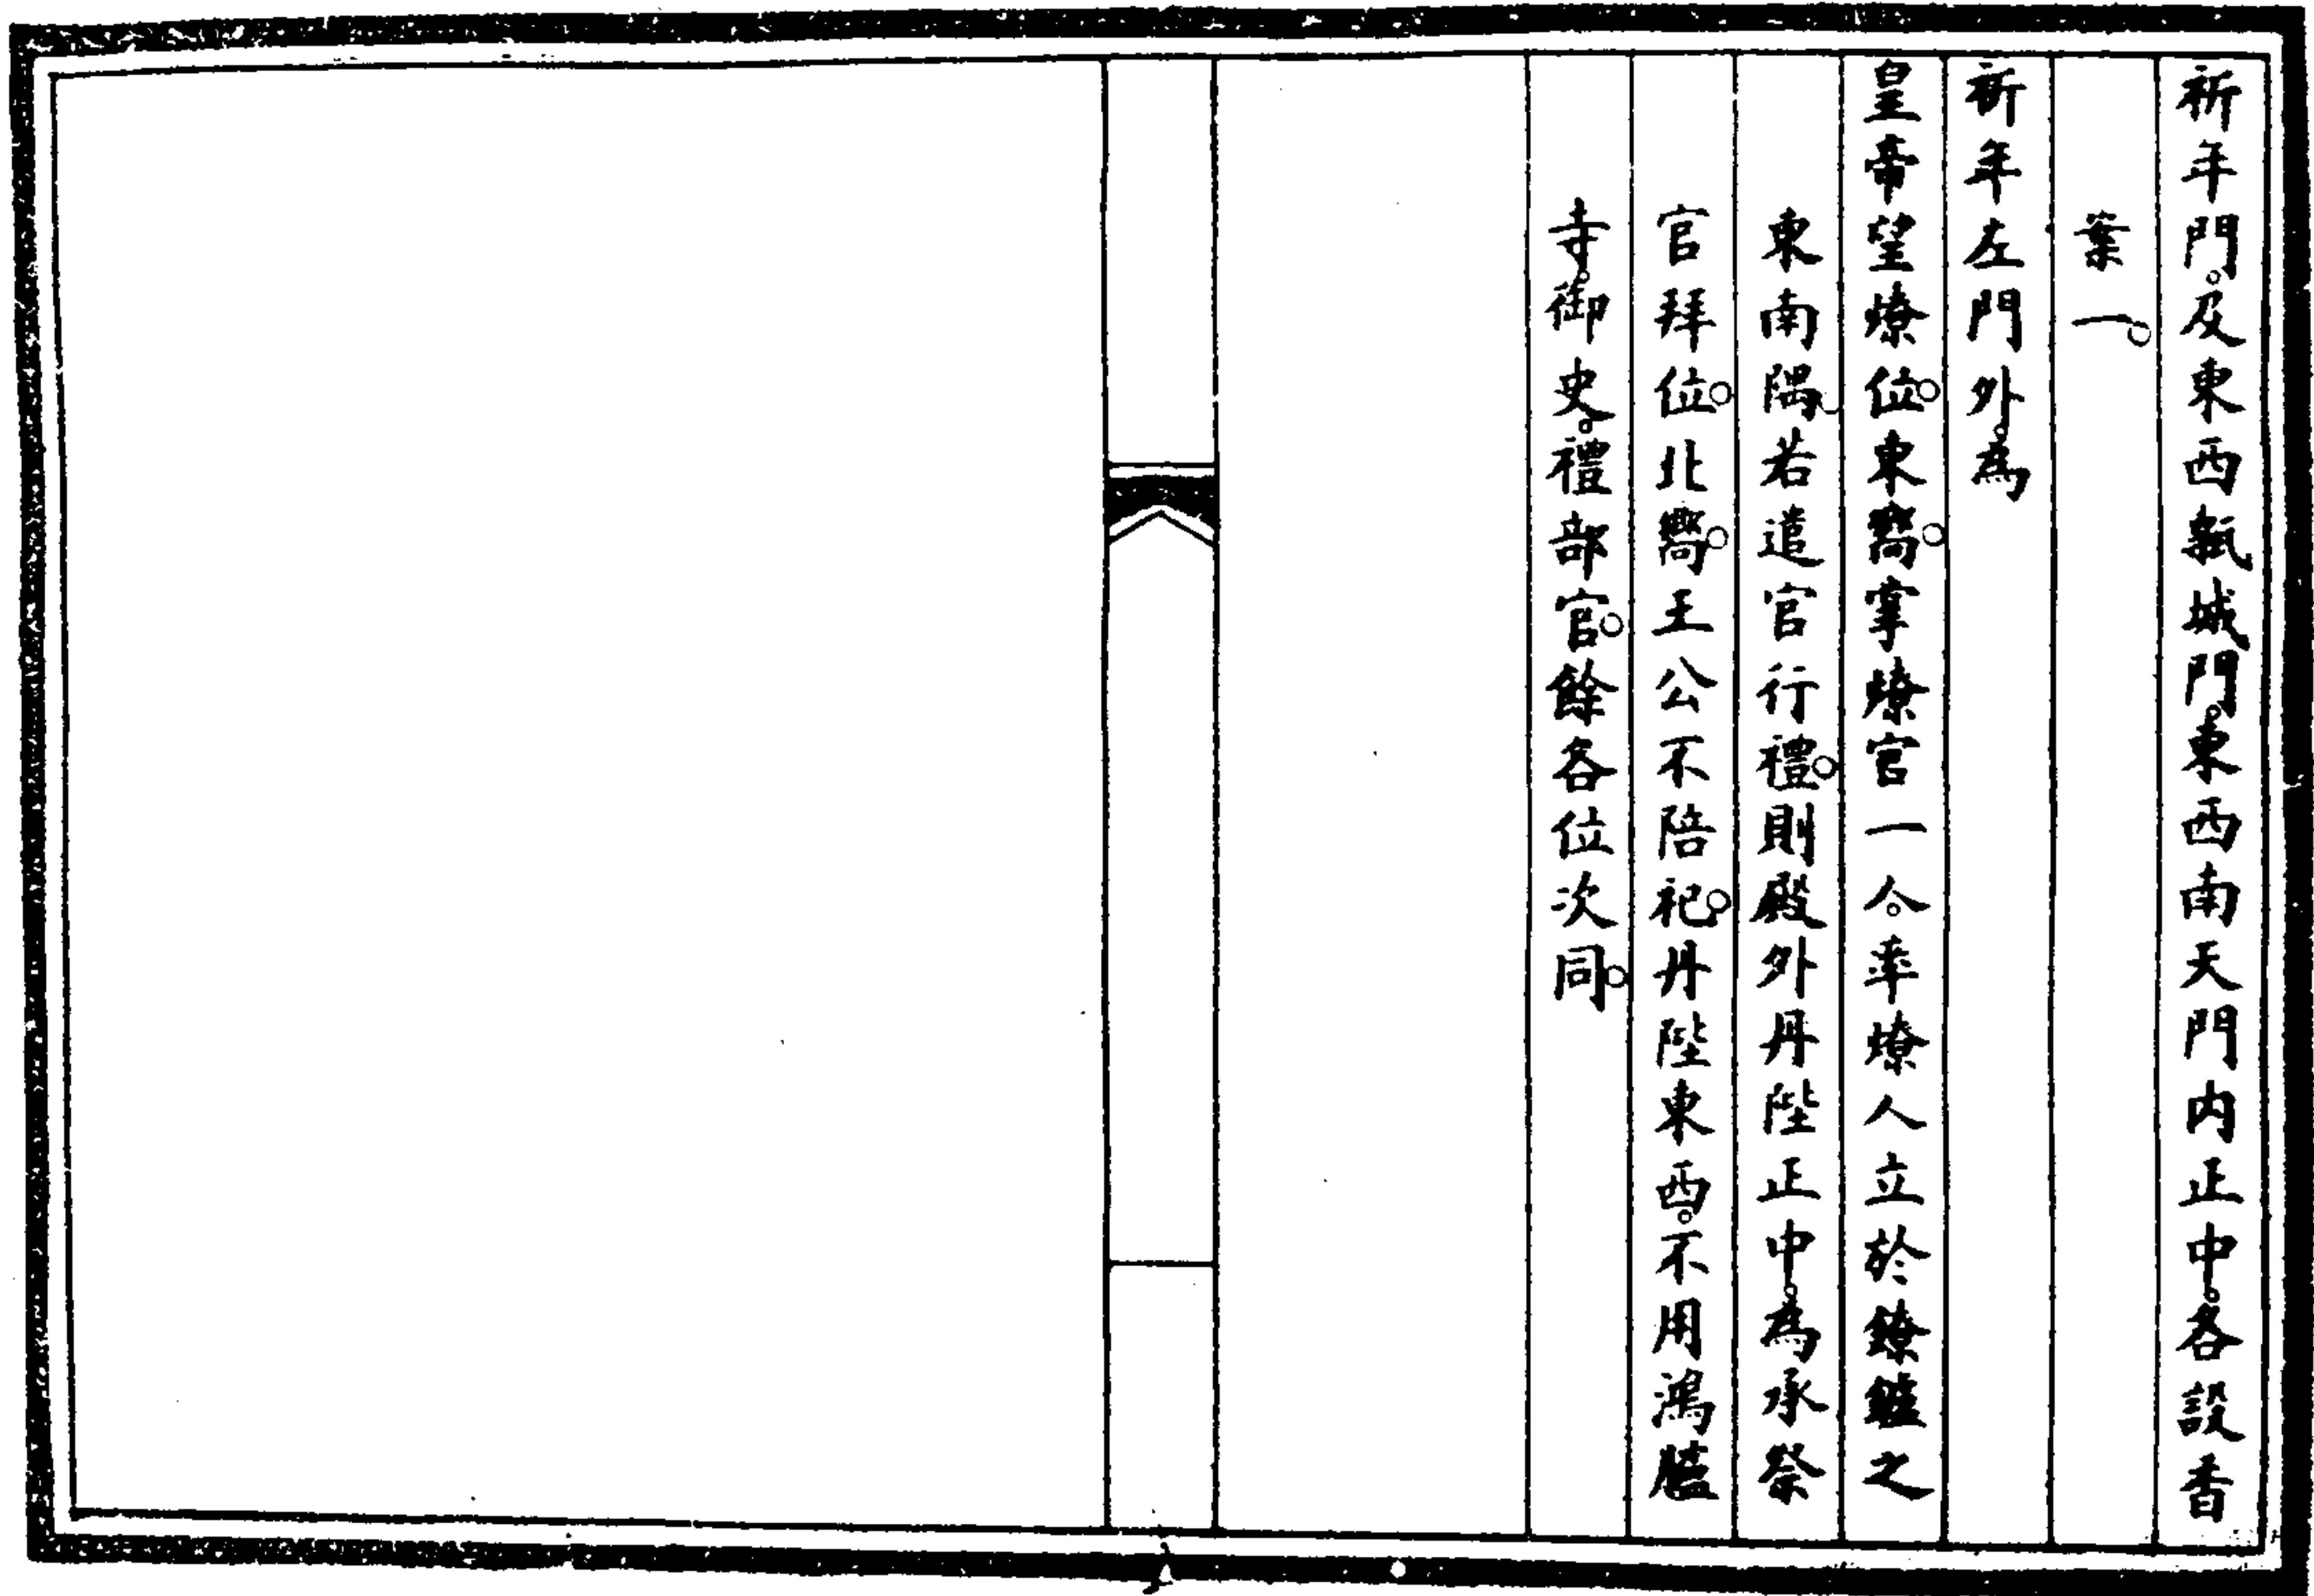 祈年門。及東西甎城門。東西南天門內正中。各設香
案一。
祈年左門外。為
皇帝望燎位。東嚮。掌燎官一人。率燎人立於燎鑪之
東南隅。若遣官行禮。則殿外丹陛正中。為承祭
官拜位。北嚮。王公不陪祀。丹陛東西。不用鴻臚
寺。御史。禮部官。餘各位次同。